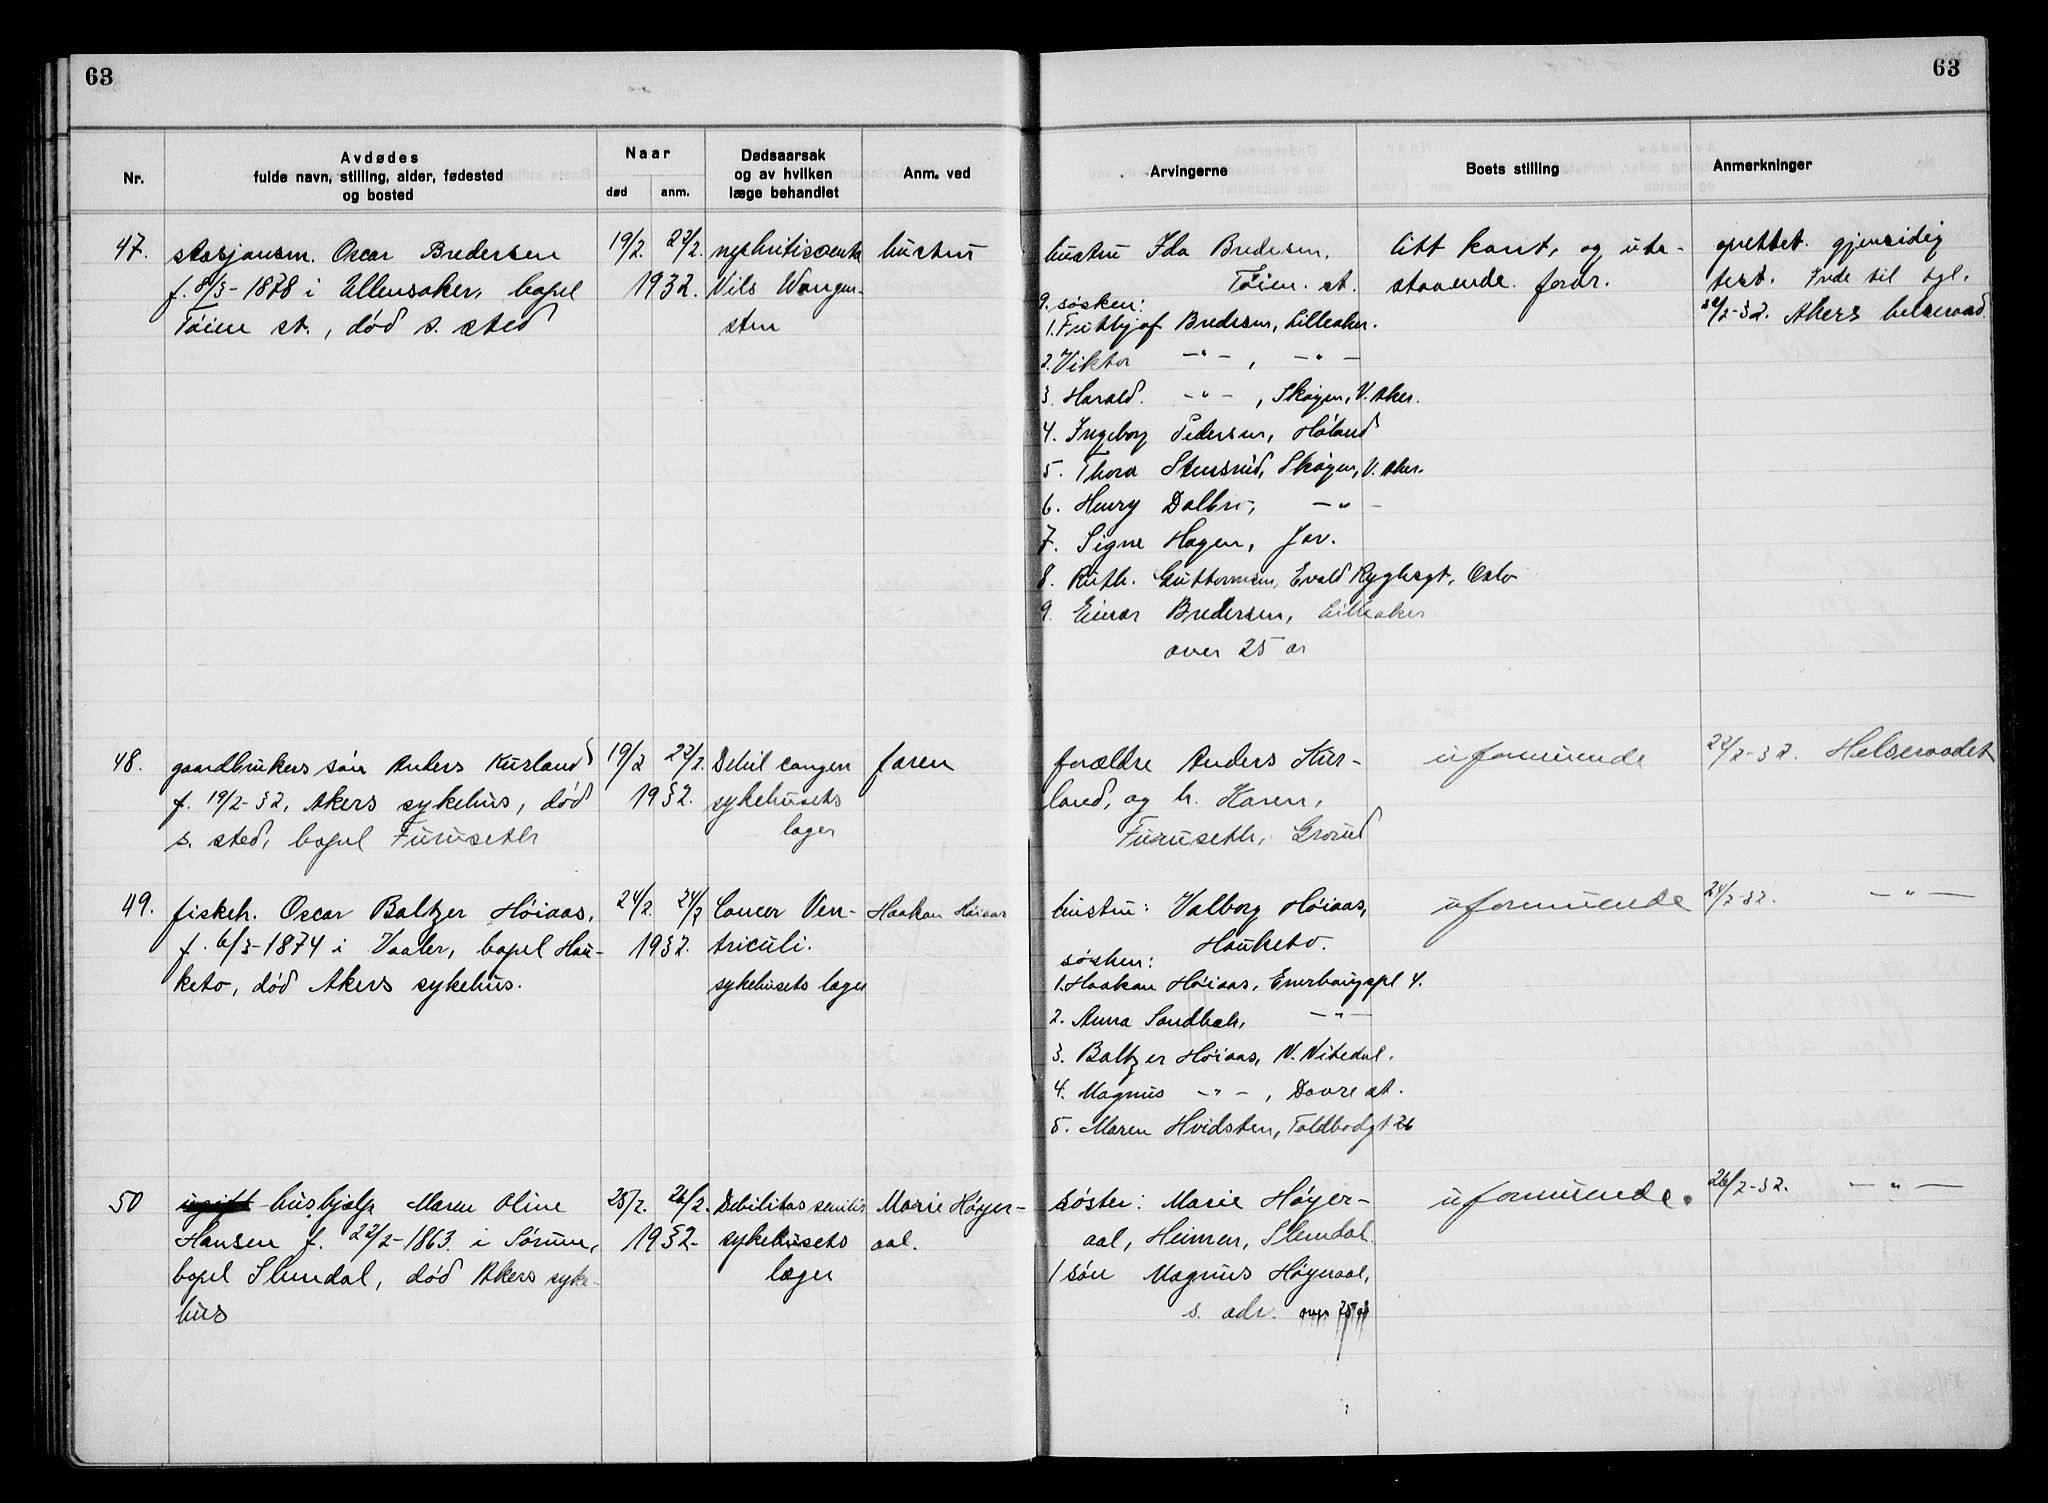 63
Nr.
Avdødes
fulde navn, stilling, alder, fødested
og bosted
Naar
død
anm.
Dødsaarsak
og av hvilken
læge behandlet
Anm. ved
47.
stasjonsm. Oscar Bredersen
f. 8/3-1878 i Ullensaker, bopel
Tøien st., død s. sted
19/2. 22/2.
1932.
Nils Wangen-
sten
hustru
48.
gaardbrukers søn Anders Kurland
f. 19/2-32, Akers sykehus, død
s. sted, bopel Furuseth
19/2 22/2.
1932.
Debil congen
sykehusets
læger
faren
49.
fiskeh. Oscar Baltzer Høiaas,
f. 6/3-1874 i Vaaler, bopel Hau-
keto, død Akers sykehus.
24/2. 24/2
1932.
Cancer Ven-
triculi.
sykehusets læger
Haakon Høiaas
50
ugift hushjelp Maren Oline
Hansen f. 22/2-1863. i Sørum,
bopel Slemdal, død Akers syke-
hus
25/2. 26/2.
1932.
Debilitas senilis
sykehusets
læger
Marie Høyer-
aal.
63
Arvingerne
Boets stilling
Anmerkninger
hustru Ida Bredersen,
Tøien. st.
9. søsken:
1. Frithjof Bredersen, Lilleaker.
2. Viktor -"- , -"-
3. Harald. -"- , Skøyen, V. Aker.
4. Ingeborg Pedersen, Høland
5. Thora Stensrud, Skøyen, V. Aker.
6. Henry -"-
7. Signe Hagen,
8. Ruth. Guttormsen, Evald Ryghsgt, Oslo
9. Einar Bredersen, Lilleaker
over 25 år
litt kont, og ute-
staaende fordr.
oprettet gjensidig
test.
22/2-32. Akers helseraad.
forældre Anders Kur-
land, og h. Karen,
Furuseth, Grorud
uformuende
22/2-32. Helseraadet
hustru: Valborg Høiaas,
Hauketo.
søsken:
1. Haakon Høiaas, Enerhaugspl 4.
2. Anna Sandbæk, -"-
3. Baltzer Høiaas, N. Nitedal.
4. Magnus -"- , Dovre st.
5. Maren Hvidsten, Toldbodgt 26
uformuende
24/2-32. -"-
søster: Marie Høyer-
aal, Heimen, Slemdal.
1 søn Magnus Høyeraal,
s. adr. over 25 år
uformuende.
26/2-32. -"-